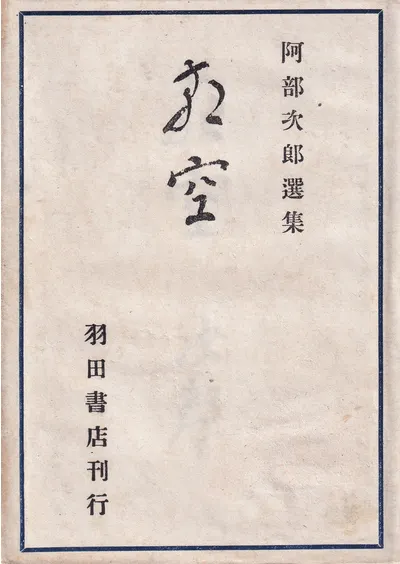 阿部次郎選集
空
羽田書店刊行